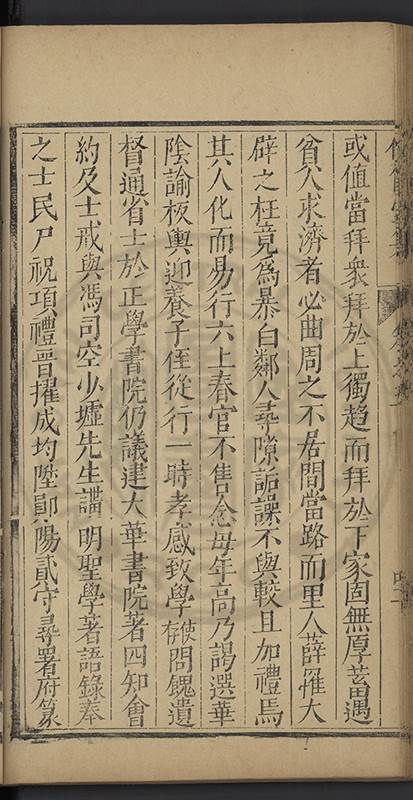 或值當拜衆拜於上獨趨而拜於下家固無厚蓄遇
貧人求濟者必曲周之不居間當路而里人薛罹大
辟之枉竟為暴白鄰人尋隙詬誶不與較且加禮焉
其人化而易行六上春官不售念母年高乃謁選華
陰諭板輿迎養子侄從行一時孝感致學使存問餽遺
督通省士於正學書院仍議建大華書院著四知會
約及士戒與馮司空少墟先生講明聖學著語錄奉
之士民尸祝項禮晉擢成均陞鄖陽貳守尋署府篆